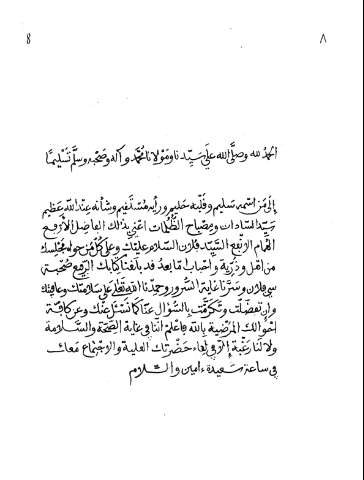 8 ٨
الحمد لله وصلّى الله على سيّدنا ومولانا محمّد وآله وصحبه وسلّم تسليما
إلى من اسمه سليم وقلبه حليم ورأيه مستقيم وشأنه عند الله عظيم
سيّد السادات ومصباح الظلمات اعني بذلك الفاضل الأرفع
الهمام الانفع السّيّد فلان السلام عليك وعلى كلّ من حوله مجلسك
من اهل وذرّية واحباب امّا بعد قد بلغنا كتابك الرفيع صحبة
سي فلان وسرّنا غاية السّرور وحمدنا الله تعلى على سلامتك وعافيتك
وان تفضلت وتكرّمت بالسّؤال عنّا كما نسئل عنك وعن كافّة
احوالك المرضية بالله فاعلم اننا في غاية الصّحّة والسّلامة
ولا لنا رغبة إلّا في لقاء حضرتك العلية والاجتماع معك
في ساعة سعيدة ءامين والسّلام